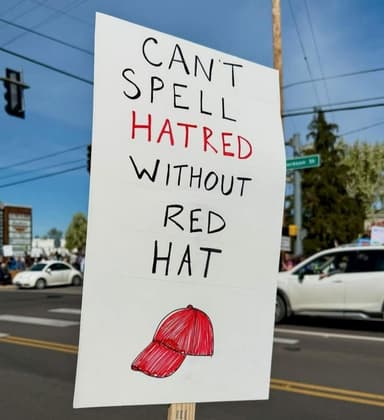 CAN'T
SPELL
HATRED
WITHOUT
RED
HAT